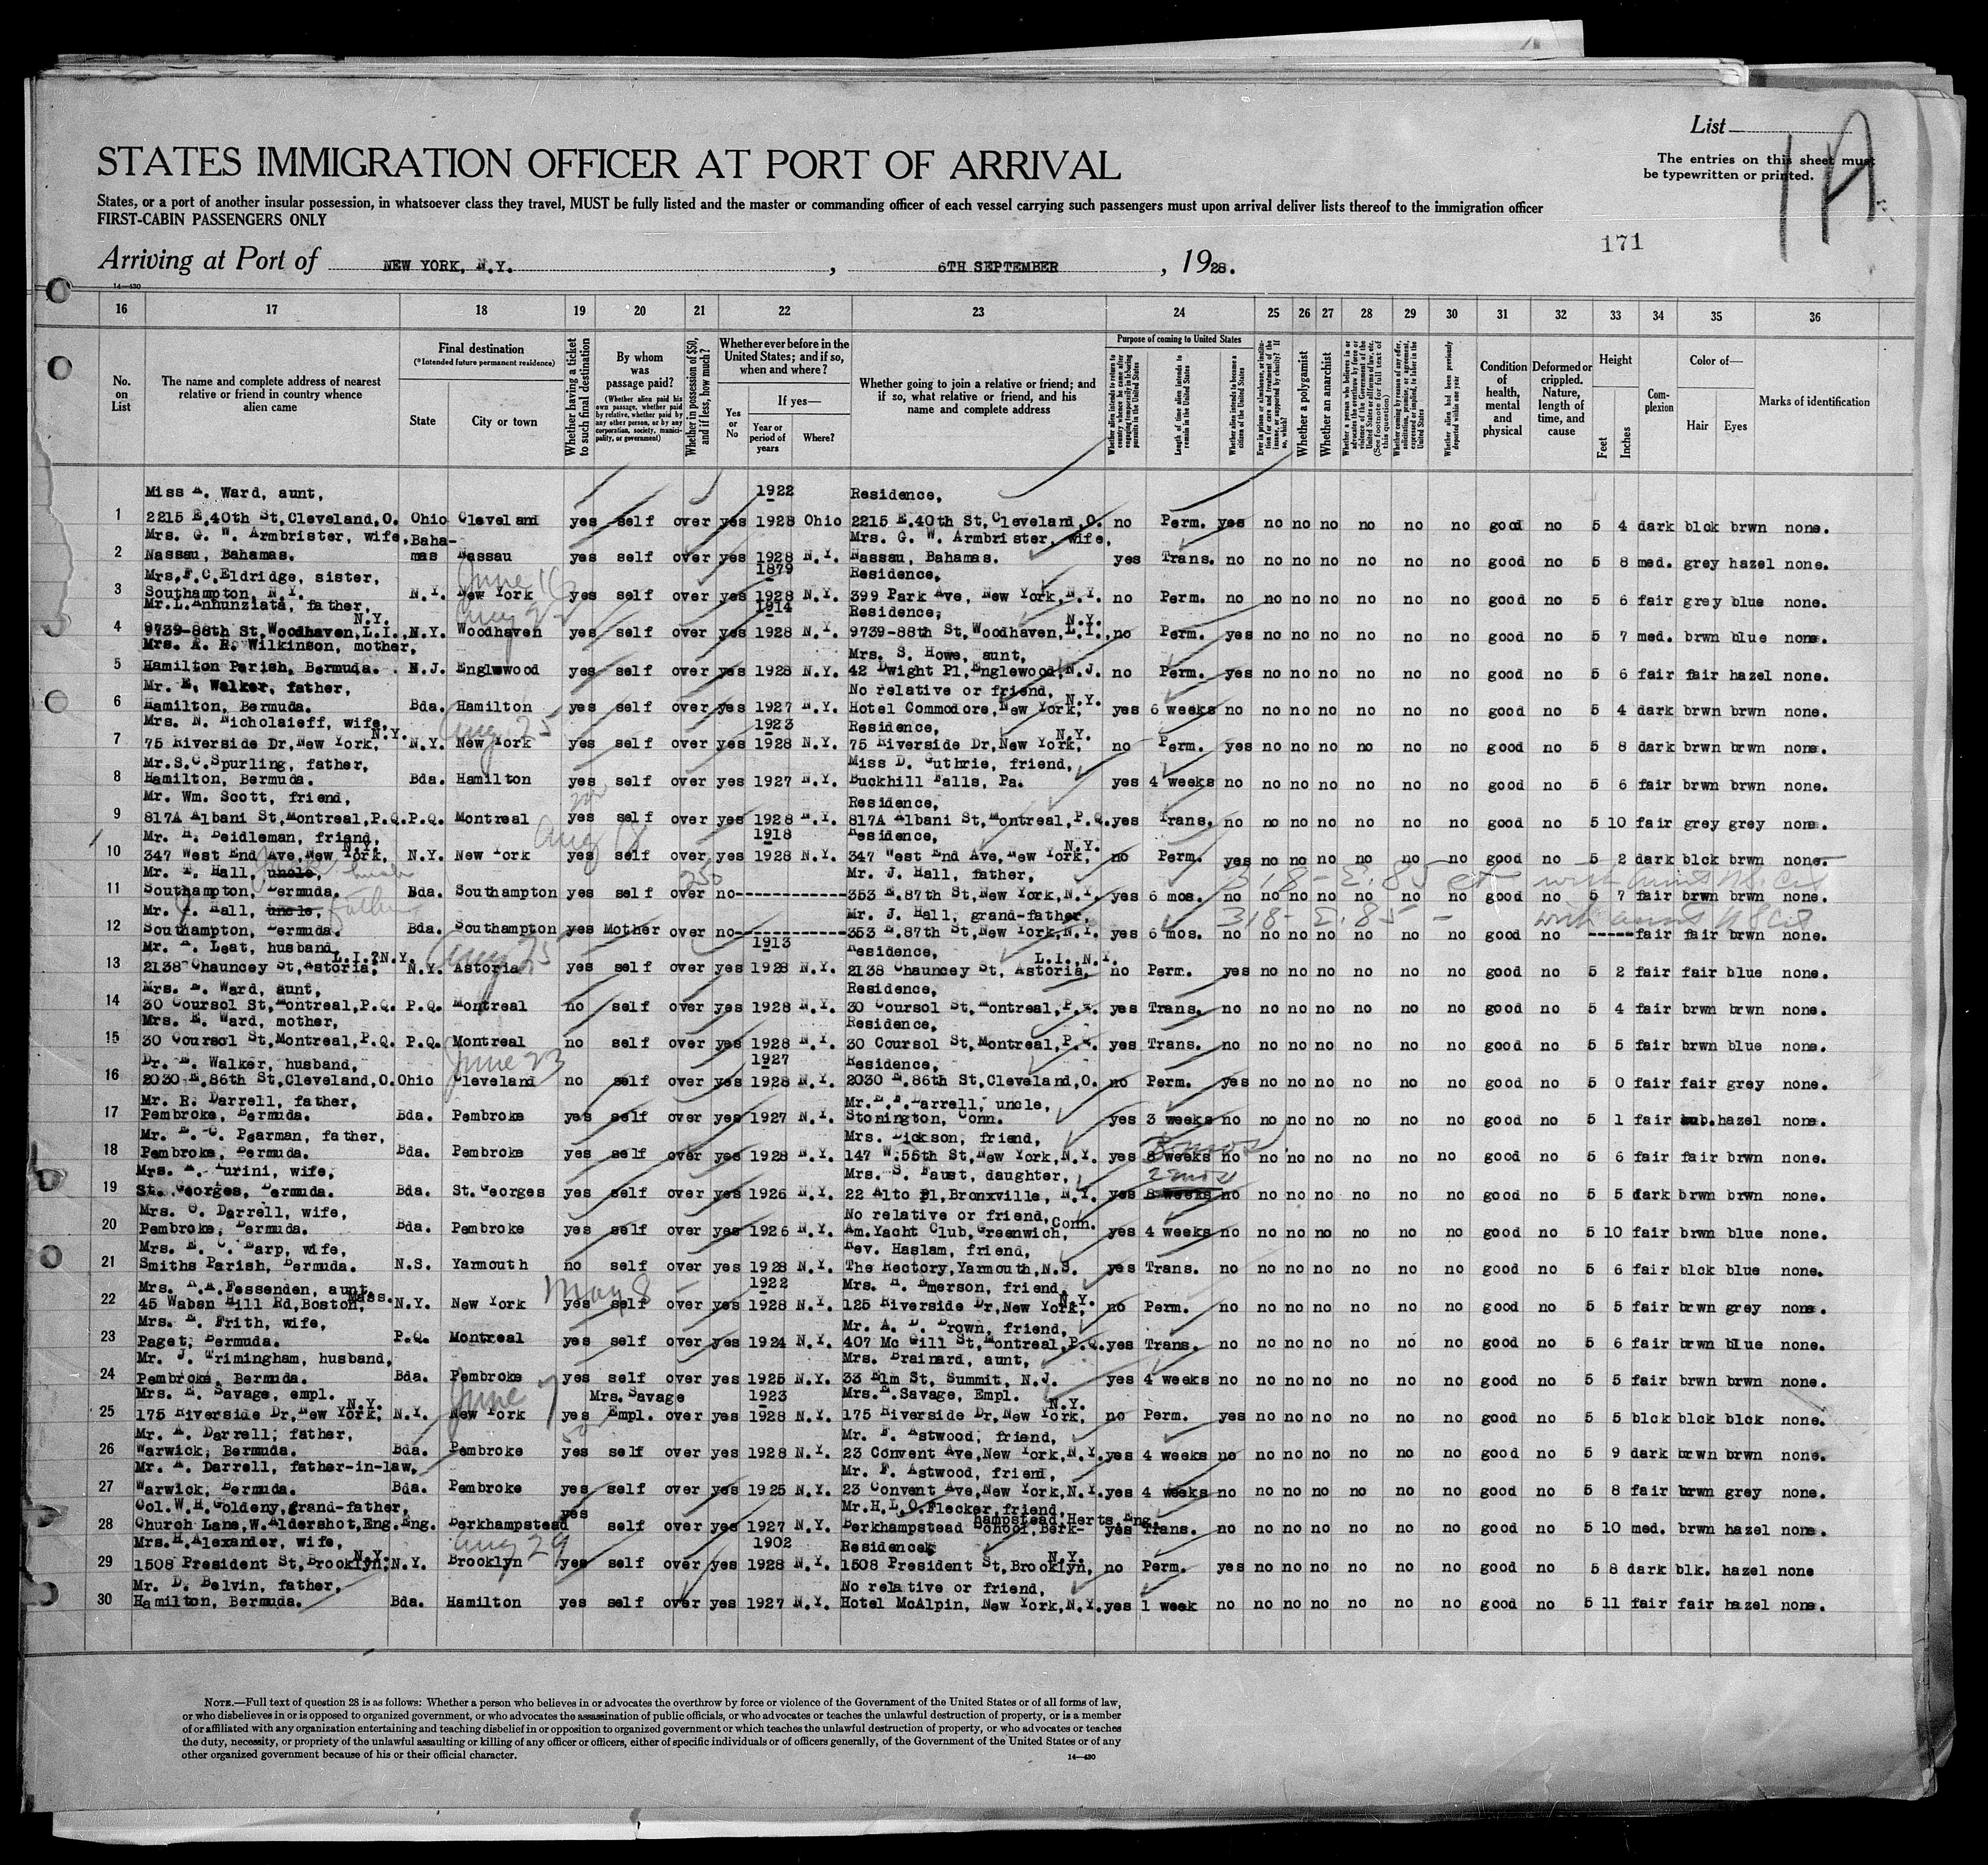 List
1A
The entries on this sheet must
be typewritten or printed.
STATES IMMIGRATION OFFICER AT PORT OF ARRIVAL
States, or a port of another insular possession, in whatsoever class they travel, MUST be fully listed and the master or commanding officer of each vessel carrying such passengers must upon arrival deliver lists thereof to the immigration officer
FIRST-CABIN PASSENGERS ONLY
171
Arriving at Port of NEW YORK, N.Y. , 6TH SEPTEMBER , 1928.
14—430
16 17 18 19 20 21 22 23 24 25 26 27 28 29 30 31 32 33 34 35 36
No. on List
The name and complete address of nearest relative or friend in country whence alien came
Final destination (*Intended future permanent residence)
State
City or town
Whether having a ticket to such final destination
By whom was passage paid?
(Whether alien paid his own passage, whether paid by relative, whether paid by any other person, or by any corporation, society, municipality, or government)
Whether in possession of $50, and if less, how much?
Whether ever before in the United States; and if so, when and where?
Yes or No
If yes—
Year or period of years
Where?
Whether going to join a relative or friend; and if so, what relative or friend, and his name and complete address
Purpose of coming to United States
Length of time alien intends to remain in the United States
Whether alien intends to become a citizen of the United States
Whether a polygamist
Whether an anarchist
Whether alien had been previously deported within one year
Condition of health, mental and physical
Deformed or crippled. Nature, length of time, and cause
Height
Feet
Inches
Complexion
Color of—
Hair
Eyes
Marks of identification
Miss A. Ward, aunt, 1922 Residence,
1 2215 E.40th St,Cleveland,O. Ohio Cleveland yes self over yes 1928 Ohio 2215 E.40th St,Cleveland,O. no Perm. yes no no no no no no good no 5 4 dark blck brwn none.
Mrs. G. W. Armbrister, wife, Baha- Mrs. G. W. Armbrister, wife,
2 Nassau, Bahamas. mas Nassau yes self over yes 1928 N.Y. Nassau, Bahamas. yes Trans. no no no no no no no good no 5 8 med. grey hazel none.
Mrs.F.C.Eldridge, sister, June 16 1879 Residence,
3 Southampton, N.Y. N.Y. New York yes self over yes 1928 N.Y. 399 Park Ave, New York,N.Y. no Perm. no no no no no no no good no 5 6 fair grey blue none.
Mr.L.Annunziata, father, N.Y. Aug 22 1914 Residence, N.Y.
4 9739-88th St,Woodhaven,L.I., N.Y. Woodhaven yes self over yes 1928 N.Y. 9739-88th St,Woodhaven,L.I., no Perm. yes no no no no no no good no 5 7 med. brwn blue none.
Mrs. A. R. Wilkinson, mother, Mrs. S. Howe, aunt,
5 Hamilton Parish, Bermuda. N.J. Englewood yes self over yes 1928 N.Y. 42 Dwight Pl,Englewood,N.J. no Perm. yes no no no no no no good no 5 6 fair fair hazel none.
Mr. E. Walker, father, No relative or friend, N.Y.
6 Hamilton, Bermuda. Bda. Hamilton yes self over yes 1927 N.Y. Hotel Commodore,New York, yes 6 weeks no no no no no no no good no 5 4 dark brwn brwn none.
Mrs. N. Nicholaieff, wife, N.Y. Aug 25 1923 Residence, N.Y.
7 75 Riverside Dr,New York, N.Y. New York yes self over yes 1928 N.Y. 75 Riverside Dr,New York, no Perm. yes no no no no no no good no 5 8 dark brwn brwn none.
Mr.S.C.Spurling, father, Miss D. Guthrie, friend,
8 Hamilton, Bermuda. Bda. Hamilton yes self over yes 1927 N.Y. Buckhill Falls, Pa. yes 4 weeks no no no no no no no good no 5 6 fair brwn brwn none.
Mr. Wm. Scott, friend, Residence,
9 817A Albani St,Montreal,P.Q. P.Q. Montreal yes self over yes 1928 N.Y. 817A Albani St,Montreal,P.Q. yes Trans. no no no no no no no good no 5 10 fair grey grey none.
Mr. H. Deidleman, friend, N.Y. Aug 18 1918 Residence, N.Y.
10 347 West End Ave,New York, N.Y. New York yes self over yes 1928 N.Y. 347 West End Ave,New York, no Perm. yes no no no no no no good no 5 2 dark blck brwn none.
Mr. T. Hall, uncle, 250 Mr. J. Hall, father, 318-E.85 with aunt
11 Southampton, Bermuda. Bda. Southampton yes self over no 353 E.87th St,New York,N.Y. yes 6 mos. no no no no no no no good no 5 7 fair brwn brwn none.
Mr. Hall, uncle, Father Mr. J. Hall, grand-father, 318-E.85 - with aunt
12 Southampton, Bermuda. Bda. Southampton yes Mother over no 353 E.87th St,New York,N.Y. yes 6 mos. no no no no no no no good no ----- fair fair brwn none.
Mr. A. Leat, husband, L.I.,N.Y. Aug 25 1913 Residence, L.I.,N.Y.
13 2138 Chauncey St,Astoria, N.Y. Astoria yes self over yes 1928 N.Y. 2138 Chauncey St, Astoria, no Perm. yes no no no no no no good no 5 2 fair fair blue none.
Mrs. E. Ward, aunt, Residence,
14 30 Coursol St,Montreal,P.Q. P.Q. Montreal no self over yes 1928 N.Y. 30 Coursol St,Montreal,P.Q. yes Trans. no no no no no no no good no 5 4 fair brwn brwn none.
Mrs. E. Ward, mother, Residence,
15 30 Coursol St,Montreal,P.Q. P.Q. Montreal no self over yes 1928 N.Y. 30 Coursol St,Montreal,P.Q. yes Trans. no no no no no no no good no 5 5 fair brwn blue none.
Dr. E. Walker, husband, June 23 1927 Residence,
16 2030 E.86th St,Cleveland,O. Ohio Cleveland no self over yes 1928 N.Y. 2030 E.86th St,Cleveland,O. no Perm. yes no no no no no no good no 5 0 fair fair grey none.
Mr. R. Darrell, father, Mr.E.F.Darrell, uncle,
17 Pembroke, Bermuda. Bda. Pembroke yes self over yes 1927 N.Y. Stonington, Conn. yes 3 weeks no no no no no no no good no 5 1 fair aub. hazel none.
Mr. E. C. Pearman, father, Mrs. Dickson, friend,
18 Pembroke, Bermuda. Bda. Pembroke yes self over yes 1928 N.Y. 147 W.55th St,New York,N.Y. yes 8 weeks no no no no no no no good no 5 6 fair fair brwn none.
Mrs. A. Turini, wife, Mrs. S. Faust, daughter, 2 mos
19 St. Georges, Bermuda. Bda. St.Georges yes self over yes 1926 N.Y. 22 Alto Pl,Bronxville, N.Y. yes 8 weeks no no no no no no no good no 5 5 dark brwn brwn none.
Mrs. O. Darrell, wife, No relative or friend, Conn.
20 Pembroke, Bermuda. Bda. Pembroke yes self over yes 1926 N.Y. Am.Yacht Club,Greenwich, yes 4 weeks no no no no no no no good no 5 10 fair brwn blue none.
Mrs. E. C. Earp, wife, Rev. Haslam, friend,
21 Smiths Parish, Bermuda. N.S. Yarmouth no self over yes 1928 N.Y. The Rectory,Yarmouth,N.S. yes Trans. no no no no no no no good no 5 6 fair blck blue none.
Mrs. A. Fessenden, aunt, Mass. May 8 1922 Mrs. H. Emerson, friend, N.Y.
22 45 Waban Hill Rd,Boston, N.Y. New York yes self over yes 1928 N.Y. 125 Riverside Dr,New York, no Perm. no no no no no no no good no 5 5 fair brwn grey none.
Mrs. E. Frith, wife, Mr. A. D. Brown, friend,
23 Paget, Bermuda. P.Q. Montreal yes self over yes 1924 N.Y. 407 Mc Gill St,Montreal,P.Q. yes Trans. no no no no no no no good no 5 6 fair brwn blue none.
Mr. J. Trimingham, husband, Mrs. Brainard, aunt,
24 Pembroke, Bermuda. Bda. Pembroke yes self over yes 1925 N.Y. 33 Elm St, Summit, N.J. yes 4 weeks no no no no no no no good no 5 5 fair brwn brwn none.
Mrs. E. Savage, empl. N.Y. June 7 Mrs. Savage 1923 Mrs.E.Savage, Empl. N.Y.
25 175 Riverside Dr,New York, N.Y. New York yes Empl. over yes 1928 N.Y. 175 Riverside Dr,New York, no Perm. yes no no no no no no good no 5 5 blck blck blck none.
Mr. A. Darrell, father, Mr. F. Astwood, friend,
26 Warwick, Bermuda. Bda. Pembroke yes self over yes 1928 N.Y. 23 Convent Ave,New York,N.Y. yes 4 weeks no no no no no no no good no 5 9 dark brwn brwn none.
Mr. A. Darrell, father-in-law, Mr. F. Astwood, friend,
27 Warwick, Bermuda. Bda. Pembroke yes self over yes 1925 N.Y. 23 Convent Ave,New York,N.Y. yes 4 weeks no no no no no no no good no 5 8 fair brwn grey none.
Col.W.H.Goldeny,grand-father, yes Mr.H.L.O.Flecker,friend, hampstead,Herts,Eng.
28 Church Lane,W.Aldershot,Eng. Eng. Berkhampstead self over yes 1927 N.Y. Berkhampstead School,Berk- yes Trans. no no no no no no no good no 5 10 med. brwn hazel none.
Mrs.H.Alexander, wife, N.Y. Aug 29 1902 Residence, N.Y.
29 1508 President St,Brooklyn, N.Y. Brooklyn yes self over yes 1928 N.Y. 1508 President St,Brooklyn, no Perm. yes no no no no no no good no 5 8 dark blk. hazel none
Mr. D. Belvin, father, No relative or friend,
30 Hamilton, Bermuda. Bda. Hamilton yes self over yes 1927 N.Y. Hotel McAlpin, New York,N.Y. yes 1 week no no no no no no no good no 5 11 fair fair hazel none.
NOTE.—Full text of question 28 is as follows: Whether a person who believes in or advocates the overthrow by force or violence of the Government of the United States or of all forms of law,
or who disbelieves in or is opposed to organized government, or who advocates the assassination of public officials, or who advocates or teaches the unlawful destruction of property, or is a member
of or affiliated with any organization entertaining and teaching disbelief in or opposition to organized government or which teaches the unlawful destruction of property, or who advocates or teaches
the duty, necessity, or propriety of the unlawful assaulting or killing of any officer or officers, either of specific individuals or of officers generally, of the Government of the United States or of any
other organized government because of his or their official character.
14—430